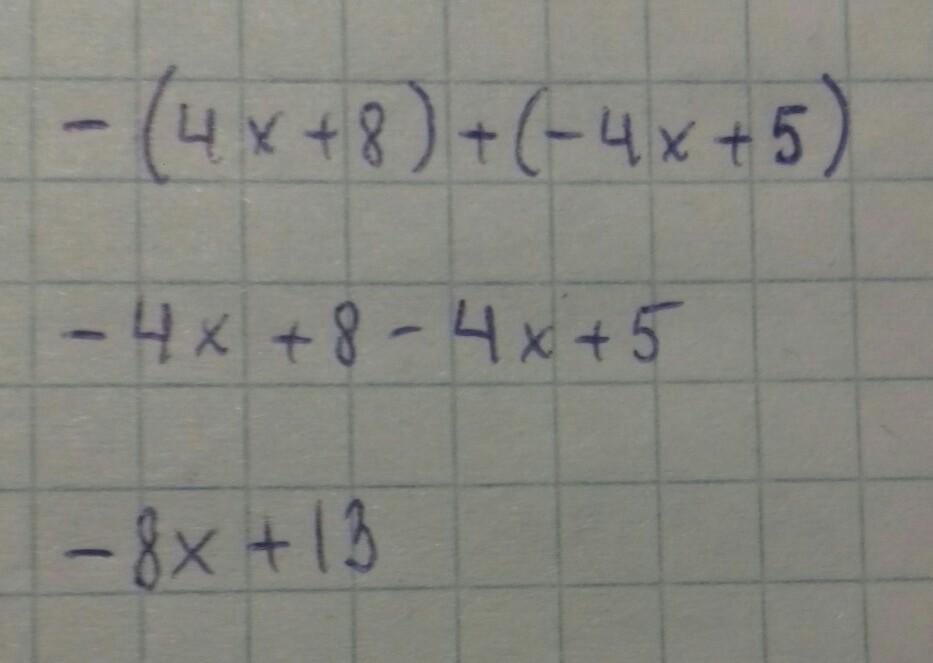 -(4x+8)+(-4x+5)
-4x+8-4x+5
-8x+13